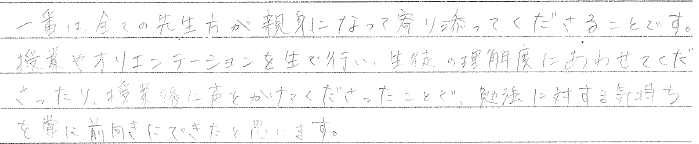 一番は、全ての先生方が親身になって寄り添ってくださることです。
授業やオリエンテーションを生で行い、生徒の理解度にあわせてくだ
さったり、授業後に声をかけてくださったことで、勉強に対する気持ち
を常に前向きにできたと思います。